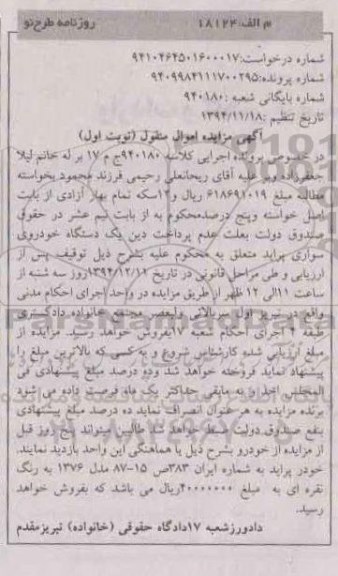 م الف: ۱۸۱۲۴ روزنامه طرح نو
شماره درخواست: ۹۴۱۰۴۶۴۵۰۱۶۰۰۰۱۷
شماره پرونده: ۹۴۰۹۹۸۴۱۱۱۷۰۰۲۹۵
شماره بایگانی شعبه: ۹۴۰۱۸۰
تاریخ تنظیم: ۱۳۹۴/۱۱/۱۸
آگهی مزایده اموال منقول (نوبت اول)
در خصوص پرونده اجرایی کلاسه ۹۴۰۱۸۰ج م ۱۷ بر له خانم لیلا
جعفرزاده و بر علیه آقای ریحانعلی رحیمی فرزند محمود بخواسته
مطالبه مبلغ ۶۱۸۶۹۱۰۱۹ ریال و ۱۲سکه تمام بهار آزادی از بابت
اصل خواسته و پنج درصدمحکوم به از بابت نیم عشر در حقوق
صندوق دولت بعلت عدم پرداخت دین یک دستگاه خودروی
سواری پراید متعلق به محکوم علیه بشرح ذیل توقیف پس از
ارزیابی و طی مراحل قانونی در تاریخ ۱۳۹۴/۱۲/۱۱روز سه شنبه از
ساعت ۱۱الی ۱۲ ظهر از طریق مزایده در واحد اجرای احکام مدنی
واقع در تبریز اول سربالائی ولیعصر مجتمع خانواده دادگستری
طبقه اجرای احکام شعبه ۱۷بفروش خواهد رسید. مزایده از
مبلغ ارزیابی شده کارشناس شروع و به کسی که بالاترین مبلغ را
پیشنهاد نماید فروخته خواهد شد وده درصد مبلغ پیشنهادی فی
المجلس اخذ و به مابقی حداکثر یک ماه فرصت داده می شود
برنده مزایده به هر عنوان انصراف نماید ده درصد مبلغ پیشنهادی
بنفع صندوق دولت ضبط خواهد شد طالبین میتواند پنج روز قبل
از مزایده از خودرو بشرح ذیل با هماهنگی این واحد بازدید نمایند.
خودر پراید به شماره ایران ۳۸۳ص ۱۵-۸۷ مدل ۱۳۷۶ به رنگ
نقره ای به مبلغ ۴۰۰۰۰۰۰۰ریال می باشد که بفروش خواهد
رسید.
دادورزشعبه ۱۷دادگاه حقوقی (خانواده) تبریزمقدم
ParsNamadData